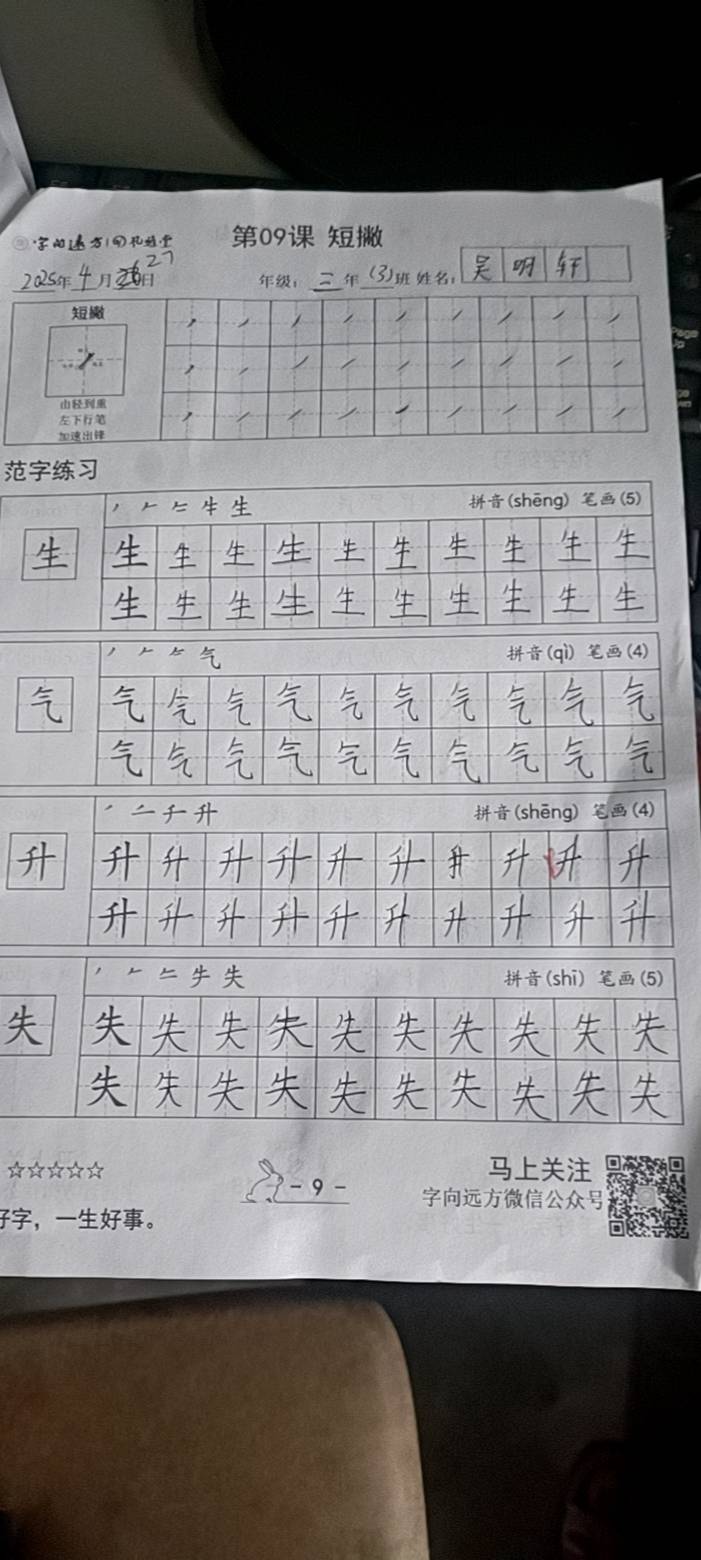 第09课 短撇
2025年4月27日 年级：三年(3)班 姓名：吴明轩
短撇
由轻到重
左下行笔
加速出锋
范字练习
生 拼音(shēng) 笔画(5)
生 生 生 生 生 生 生 生 生 生 生
生 生 生 生 生 生 生 生 生 生
气 拼音(qì) 笔画(4)
气 气 气 气 气 气 气 气 气 气 气
气 气 气 气 气 气 气 气 气 气
升 拼音(shēng) 笔画(4)
升 升 升 升 升 升 升 升 升 升 升
升 升 升 升 升 升 升 升 升 升
失 拼音(shī) 笔画(5)
失 失 失 失 失 失 失 失 失 失 失
失 失 失 失 失 失 失 失 失 失
☆☆☆☆☆ - 9 - 马上关注
字向远方微信公众号
好字，一生好事。